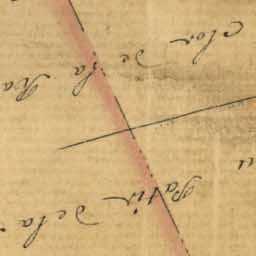 Clos de la Ra
Patis de la